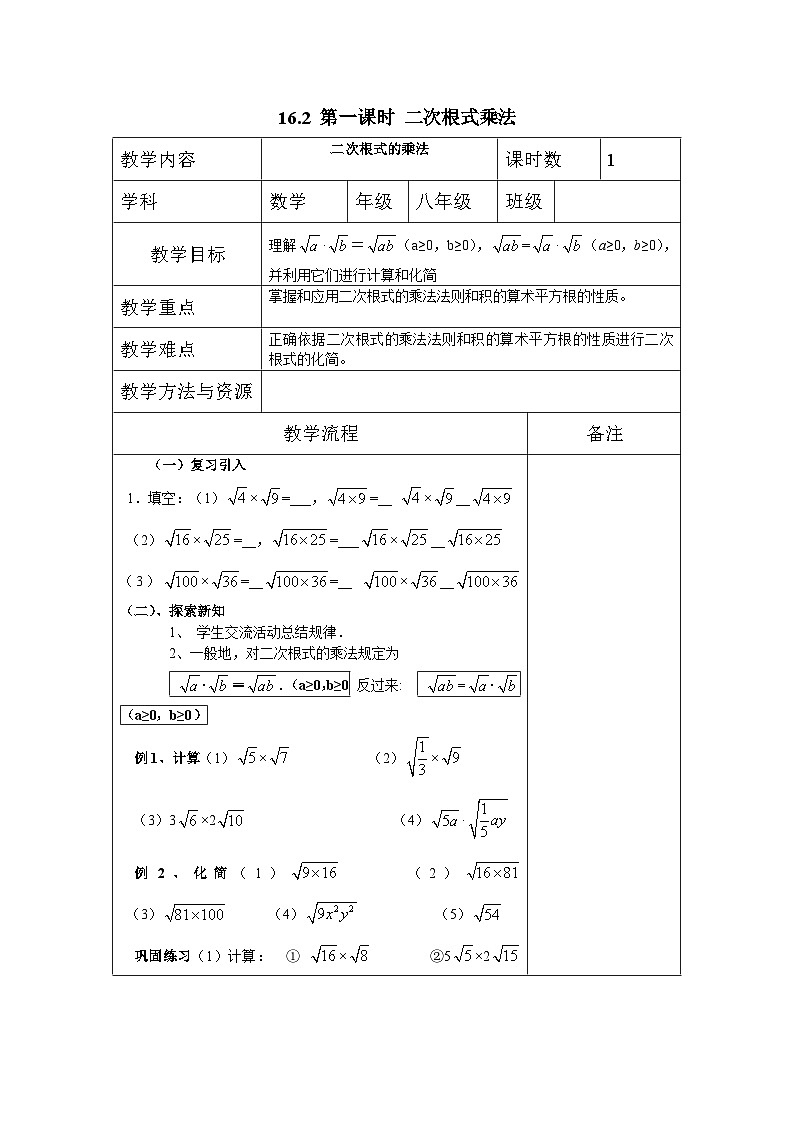 16.2 第一课时 二次根式乘法
教学内容 二次根式的乘法 课时数 1
学科 数学 年级 八年级 班级
教学目标 理解√a·√b＝√ab（a≥0，b≥0），√ab=√a·√b（a≥0，b≥0），
并利用它们进行计算和化简
教学重点 掌握和应用二次根式的乘法法则和积的算术平方根的性质。
教学难点 正确依据二次根式的乘法法则和积的算术平方根的性质进行二次
根式的化简。
教学方法与资源
教学流程 备注
（一）复习引入
1．填空：（1）√4×√9=___，√(4×9)=__ √4×√9__√(4×9)
（2）√16×√25=__，√(16×25)=___√16×√25__√(16×25)
（3）√100×√36=__√(100×36)=__ √100×√36__√(100×36)
（二）、探索新知
1、 学生交流活动总结规律．
2、一般地，对二次根式的乘法规定为
√a·√b＝√ab．（a≥0,b≥0 反过来: √ab=√a·√b
（a≥0，b≥0）
例1、计算（1）√5×√7 （2）√(1/3)×√9
（3）3√6×2√10 （4）√5a·√(1/5 ay)
例2、化简（1）√(9×16) （2）√(16×81)
（3）√(81×100) （4）√(9x²y²) （5）√54
巩固练习（1）计算： ① √16×√8 ②5√5×2√15